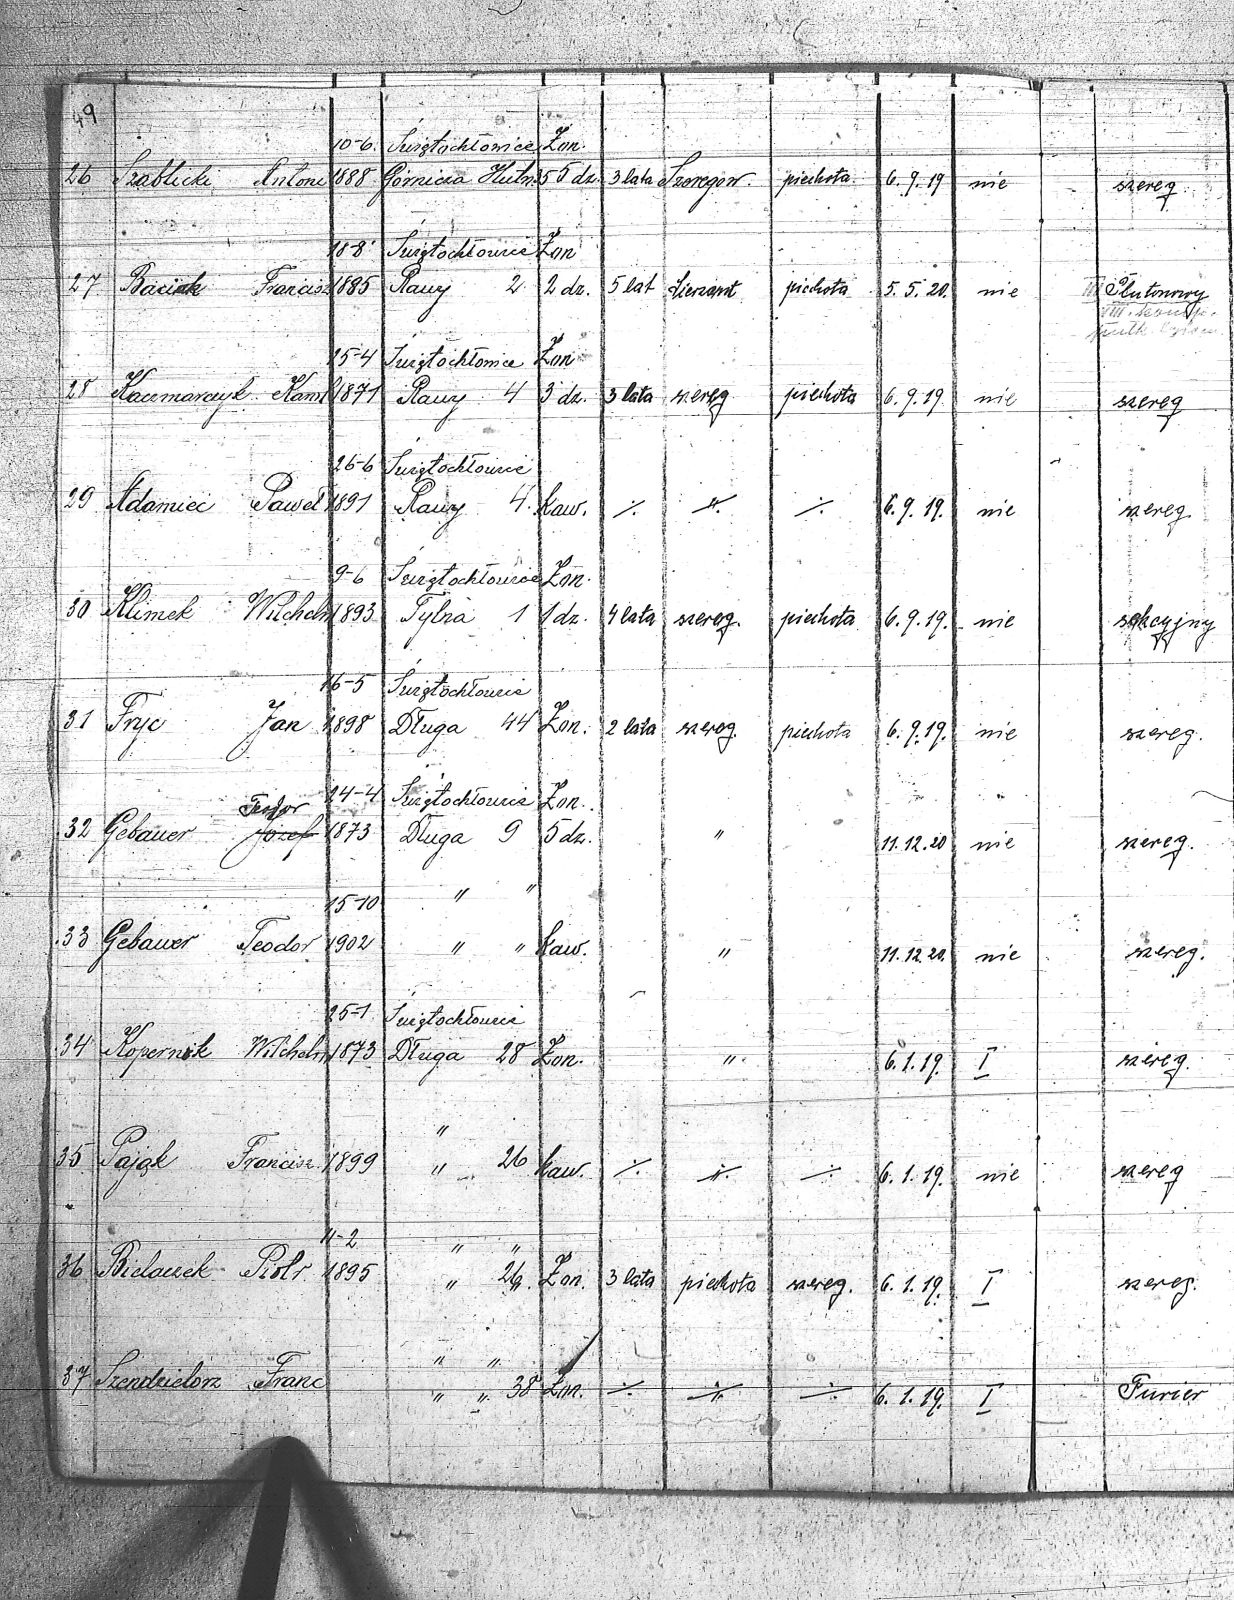 49
10-6. Świętochłowice Żon.
26 Szablicki Antoni 1888 Górnicza Hutn. 5 5 dz. 3 lata Szeregow. piechota 6.9.19 nie szereg
18-8 Świętochłowice Żon
27 Baciak Francisz 1885 Rawy 2 2 dz. 5 lat Sierzant piechota 5.5.20. nie Plutonowy
25-4 Świętochłowice Żon
28 Kaczmarczyk Karol 1871 Rawy 4 3 dz. 3 lata szereg piechota 6.9.19 nie szereg
26-6 Świętochłowice
29 Adamiec Paweł 1891 Rawy 4. kaw. ./. „ ./. 6.9.19. nie szereg.
9-6 Świętochłowice Żon.
30 Klimek Wilchelm 1893 Tylna 1 1 dz. 4 lata szereg. piechota 6.9.19. nie sekcyjny
16-5 Świętochłowice
31 Fryc Jan 1898 Długa 44 Żon. 2 lata szereg. piechota 6.9.19. nie szereg.
Teodor 24-4 Świętochłowice Żon.
32 Gebauer Józef 1873 Długa 9 5 dz. „ 11.12.20 nie szereg.
15-10 „ „
33 Gebauer Teodor 1902 „ „ kaw. „ 11.12.20. nie szereg.
25-1 Świętochłowice
34 Kopernik Wilchelm 1873 Długa 28 Żon. „ 6.1.19. I szereg.
„
35 Pająk Francisz. 1899 „ 26 kaw. ./. „ ./. 6.1.19. nie szereg
11-2 „ „
36 Bielaczek Piotr 1895 „ 26 „ Żon. 3 lata piechota szereg. 6.1.19. I szereg.
„ „
37 Szendzielorz Franc „ „ 38 Żon. ./. „ ./. 6.1.19. I Furier